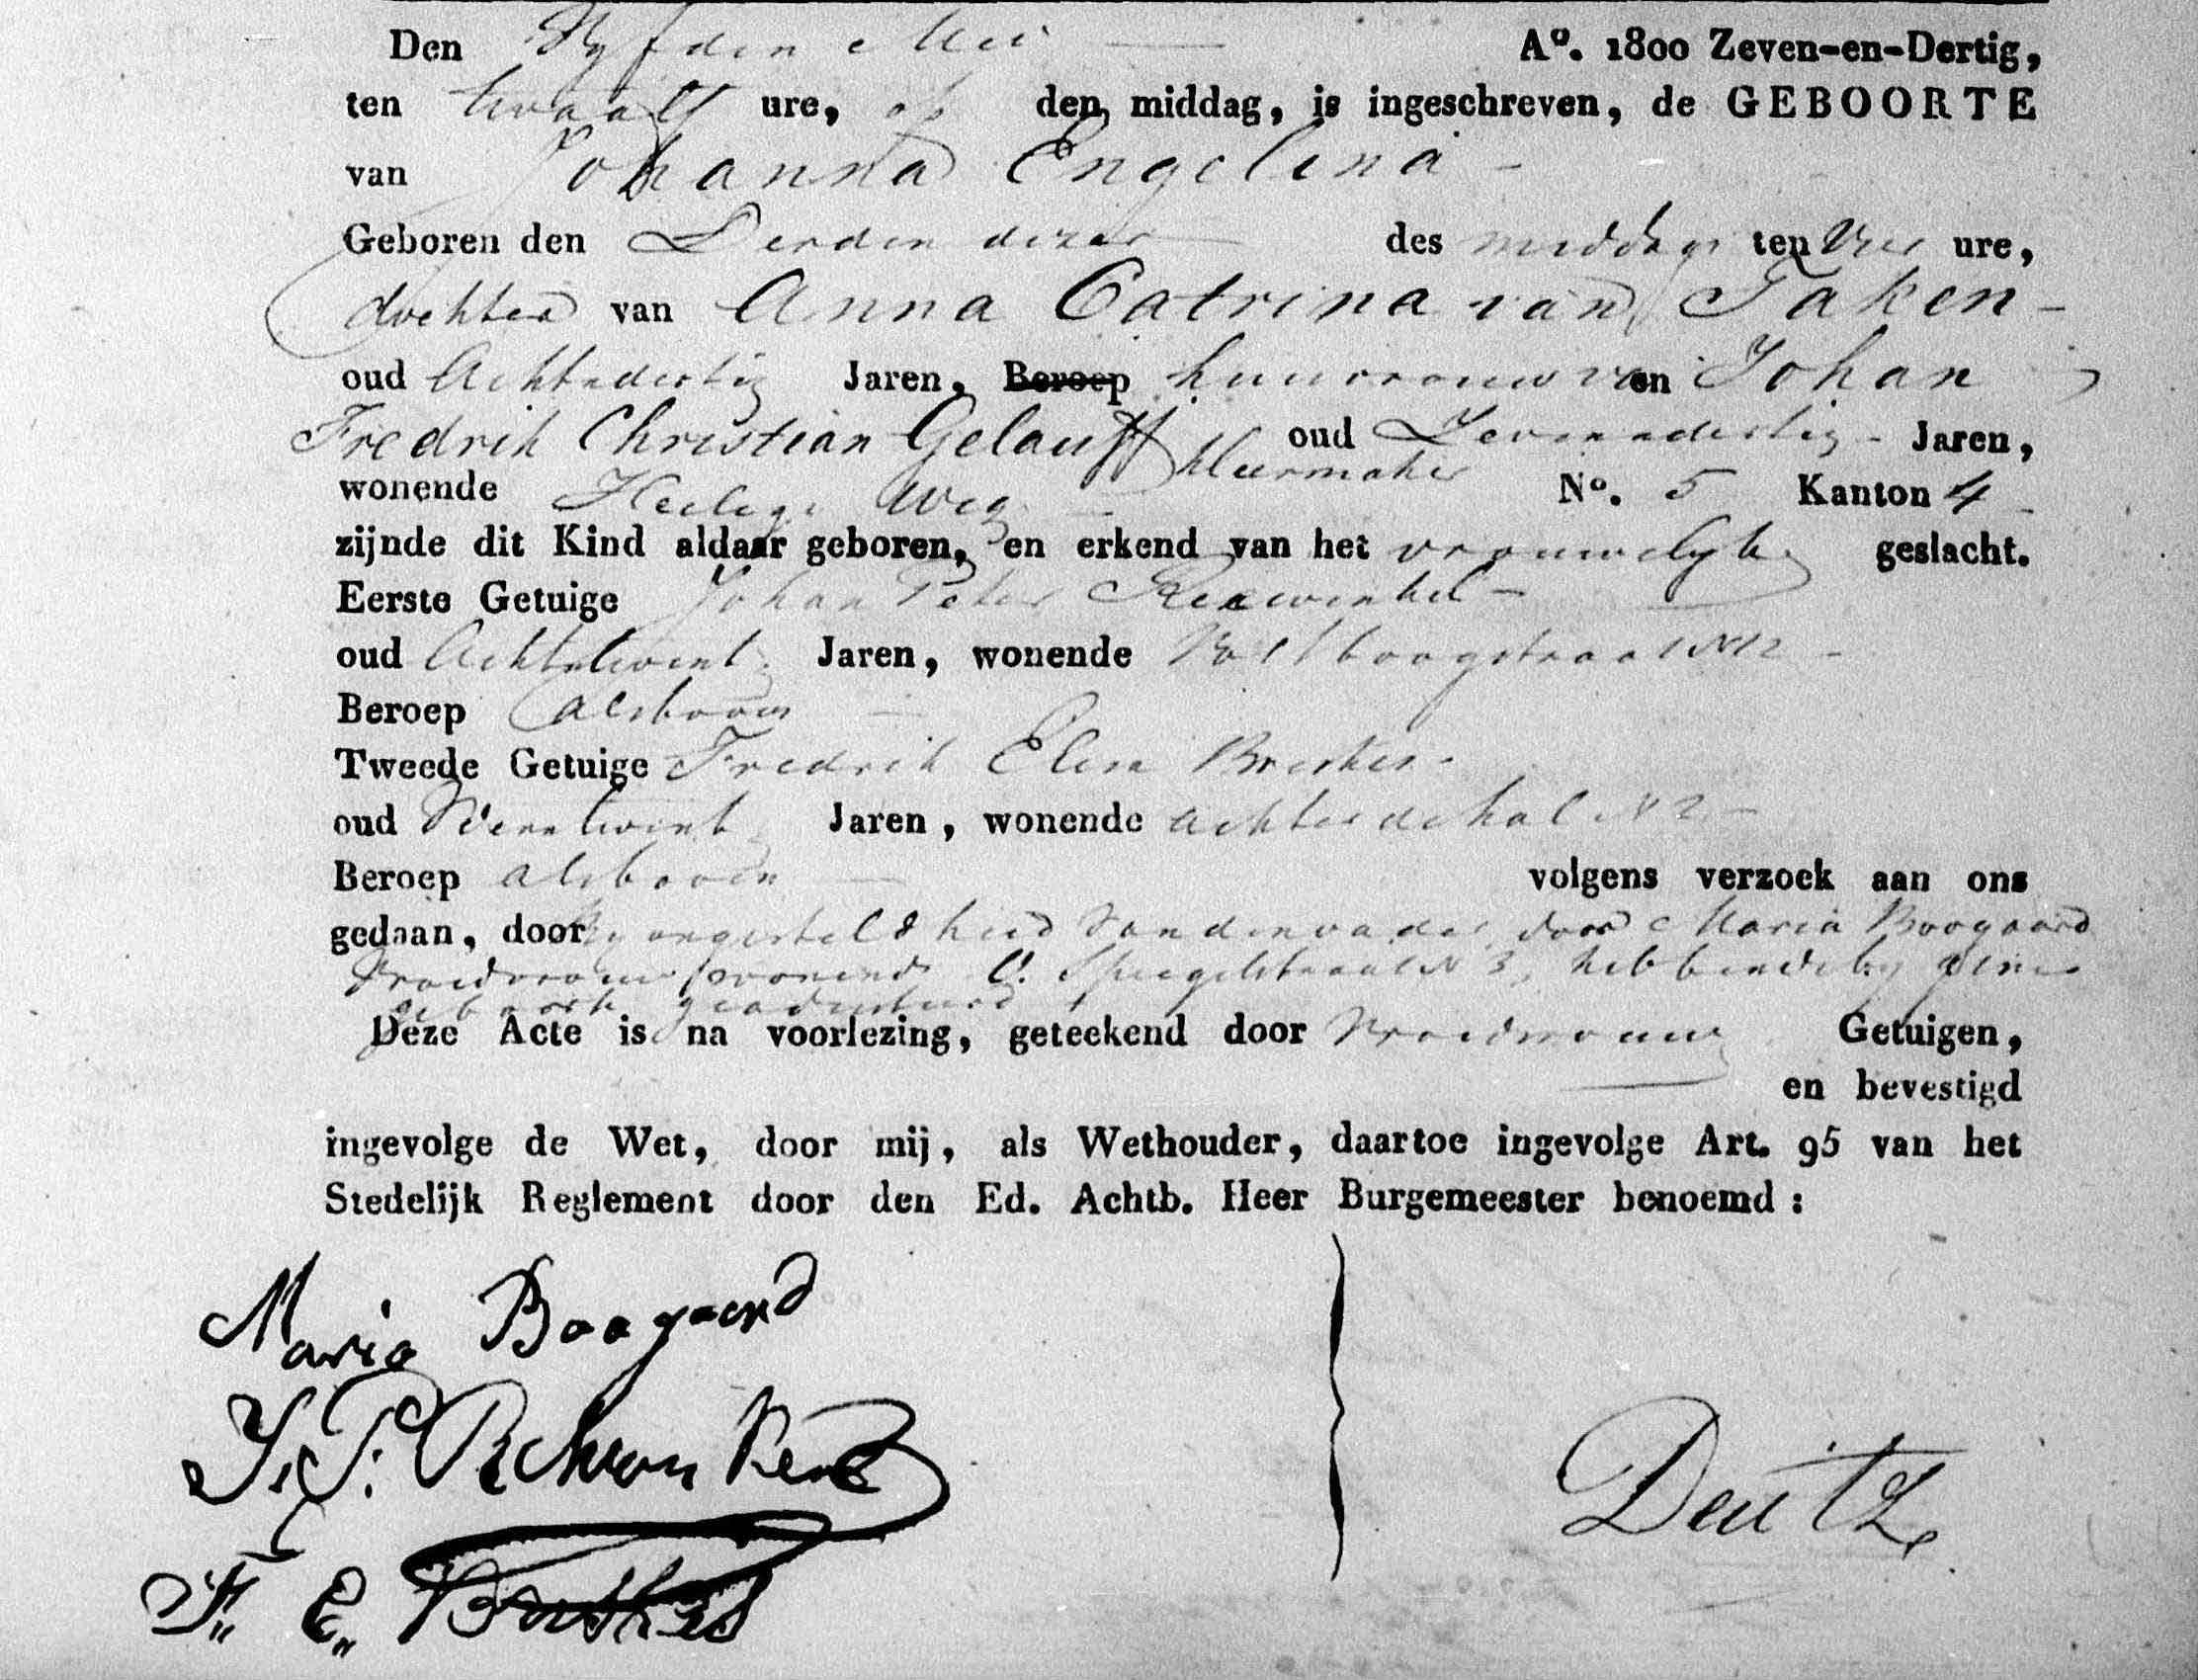 Den Vyfden Mei Aº. 1800 Zeven-en-Dertig,
ten twaalf ure, op den middag, is ingeschreven, de GEBOORTE
van Johanna Engelina
Geboren den Derden dezer des middags ten vier ure,
dochter van Anna Catrina van Taken
oud Achtendertig Jaren, Beroep huisvrouw van Johan
Fredrik Christian Gelauff oud Zevenendertig Jaren,
kleermaker
wonende Heilige Weg Nº. 5 Kanton 4
zijnde dit Kind aldaar geboren, en erkend van het vrouwelyk geslacht.
Eerste Getuige Johan Peter
oud Achtentwint Jaren, wonende Voetboogstraat N 12
Beroep alsboven
Tweede Getuige Fredrik Elisa
oud Jaren, wonende achter de hal N 2
Beroep alsboven volgens verzoek aan ons
gedaan, door by ongesteldheid van den vader, door Maria Boogaard
Vroedvrouw wonende Spiegelstraat N 3, hebbende by deze
geboorte geadsisteerd
Deze Acte is na voorlezing, geteekend door Vroedvrouw Getuigen,
en bevestigd
ingevolge de Wet, door mij, als Wethouder, daartoe ingevolge Art. 95 van het
Stedelijk Reglement door den Ed. Achtb. Heer Burgemeester benoemd:
Maria Boogaard
J. P.
Deutz
F. E.